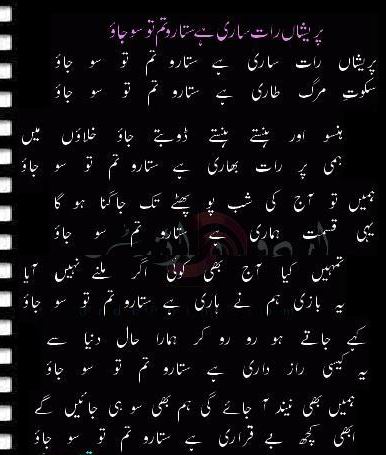 پریشاں رات ساری ہے ستارو تم تو سو جاؤ
پریشاں رات ساری ہے ستارو تم تو سو جاؤ
سکوتِ مرگ طاری ہے ستارو تم تو سو جاؤ
ہنسو اور ہنستے ہنستے ڈوبتے جاؤ خلاؤں میں
ہمی پر رات بھاری ہے ستارو تم تو سو جاؤ
ہمیں تو آج کی شب پو پھٹے تک جاگنا ہو گا
یہی قسمت ہماری ہے ستارو تم تو سو جاؤ
تمہیں کیا آج بھی کوئی اگر ملنے نہیں آیا
یہ بازی ہم نے ہاری ہے ستارو تم تو سو جاؤ
کہے جاتے ہو رو رو کر ہمارا حال دنیا سے
یہ کیسی راز داری ہے ستارو تم تو سو جاؤ
ہمیں بھی نیند آ جائے گی ہم بھی سو ہی جائیں گے
ابھی کچھ بے قراری ہے ستارو تم تو سو جاؤ